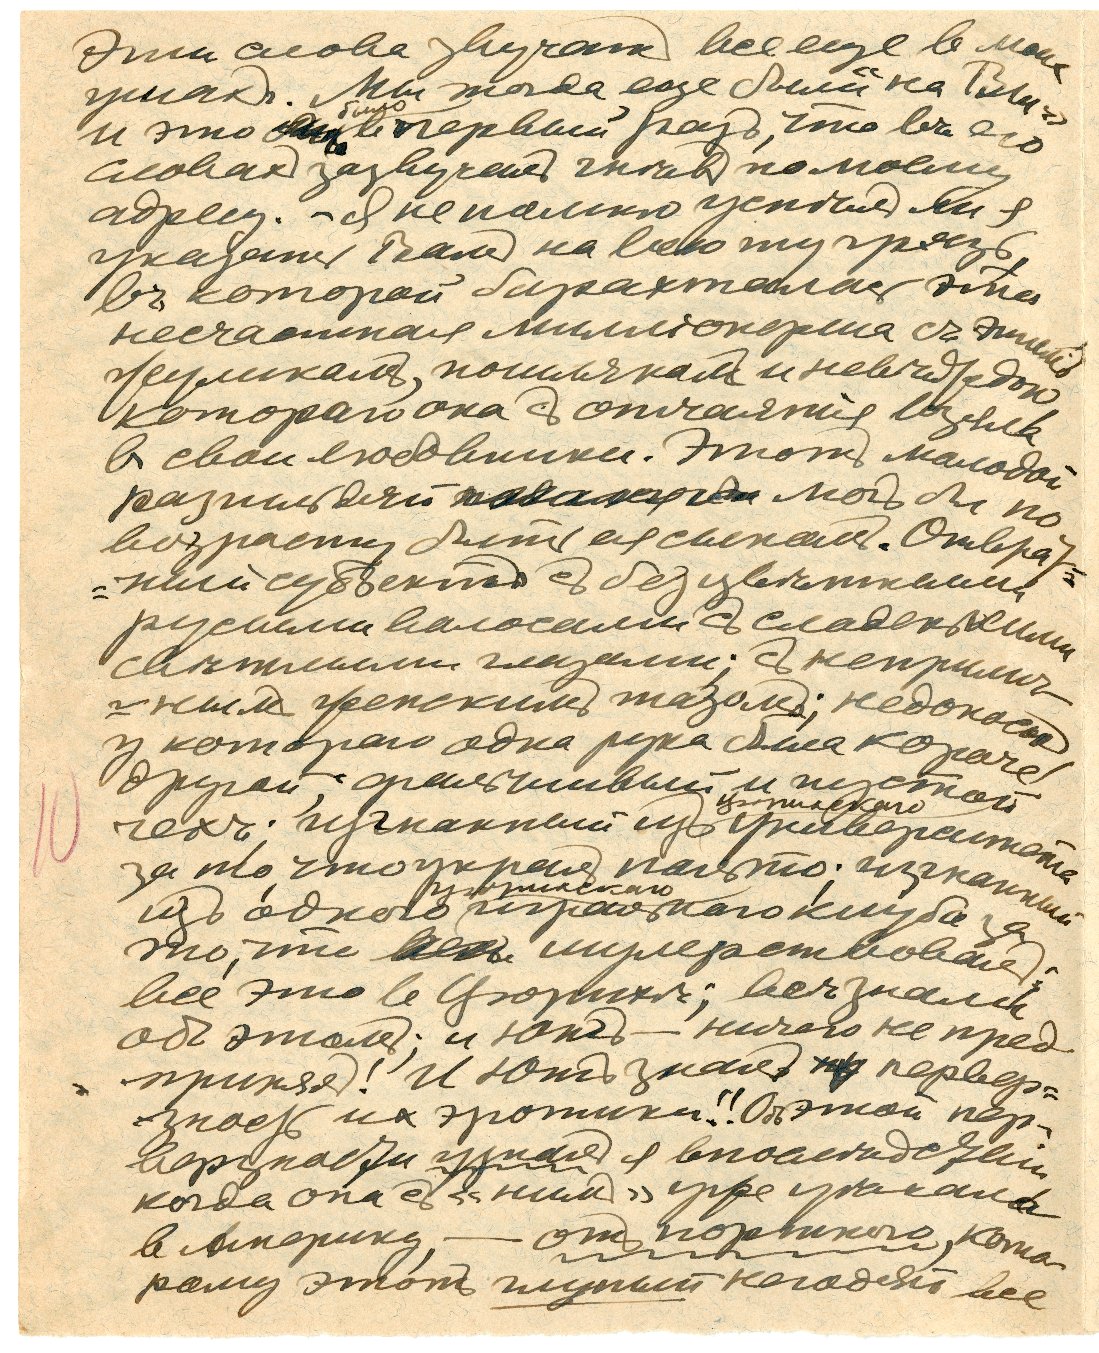 Эти слова звучатъ все еще в моихъ
ушахъ. Мы тогда еще были на Вы =
и это было в первый разъ, что въ его
словахъ зазвучалъ гнѣвъ по моему
адресу. – Я не помню успѣлъ ли я
указать Вамъ на всю ту грязь,
въ которой барахталась эта
несчастная милліонерша съ этимъ
жуликомъ, пошлякомъ и невѣждою
котораго она съ отчаянія взяла
в свои любовники. Этотъ молодой
разгильдяй могъ бы по
возрасту быть ея сыномъ. Отврат=
=ный субъектъ съ безцвѣтными
русыми волосами съ сладенькими
свѣтлыми глазами; съ неприлич-
=нымъ женскимъ тазомъ; недоносокъ
у котораго одна рука была короче
другой; фальшивый и пустой
чехъ; изгнанный изъ цюрихскаго университета
за то, что укралъ пальто; изгнанный
изъ одного цюрихскаго игральнаго клуба за
то, что шулерствовалъ;
всё это в Цюрихѣ; всѣ знали
объ этомъ; и Юнгъ — ничего не пред
принялъ! И Юнгъ зналъ первер=
=зность их эротики!! Объ этой пер-
верзности узналъ я впослѣдствіи
когда она съ «нимъ» уже уѣхала
в Америку, — отъ портного, кото-
рому этотъ глупый негодяй все